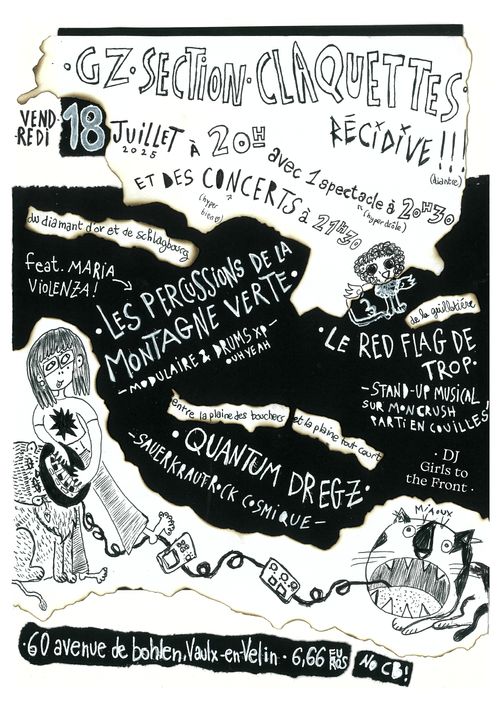 · GZ · SECTION · CLAQUETTES ·
VEND-
REDI
18
JUILLET
2025
À 20H
RÉCIDIVE !!!
avec 1 spectacle à 20H30
(hyper drôle)
ET DES CONCERTS à 21H30
(hyper
bien)
du diamant d'or et de schlagbourg
feat. MARIA
VIOLENZA !
· LES PERCUSSIONS DE LA
MONTAGNE VERTE ·
— MODULAIRE & DRUMS XP —
OUH YEAH
de la guillotière
· LE RED FLAG DE
TROP ·
— STAND-UP MUSICAL
SUR MON CRUSH
PARTI EN COUILLES
entre la plaine des bouchers et la plaine tout court
· QUANTUM DREGZ ·
— SAUERKRAUTROCK COSMIQUE —
· DJ
Girls to
the Front ·
MIAOUX
· 60 avenue de bohlen, Vaulx-en-Velin · 6,66 EUROS
NO CB !